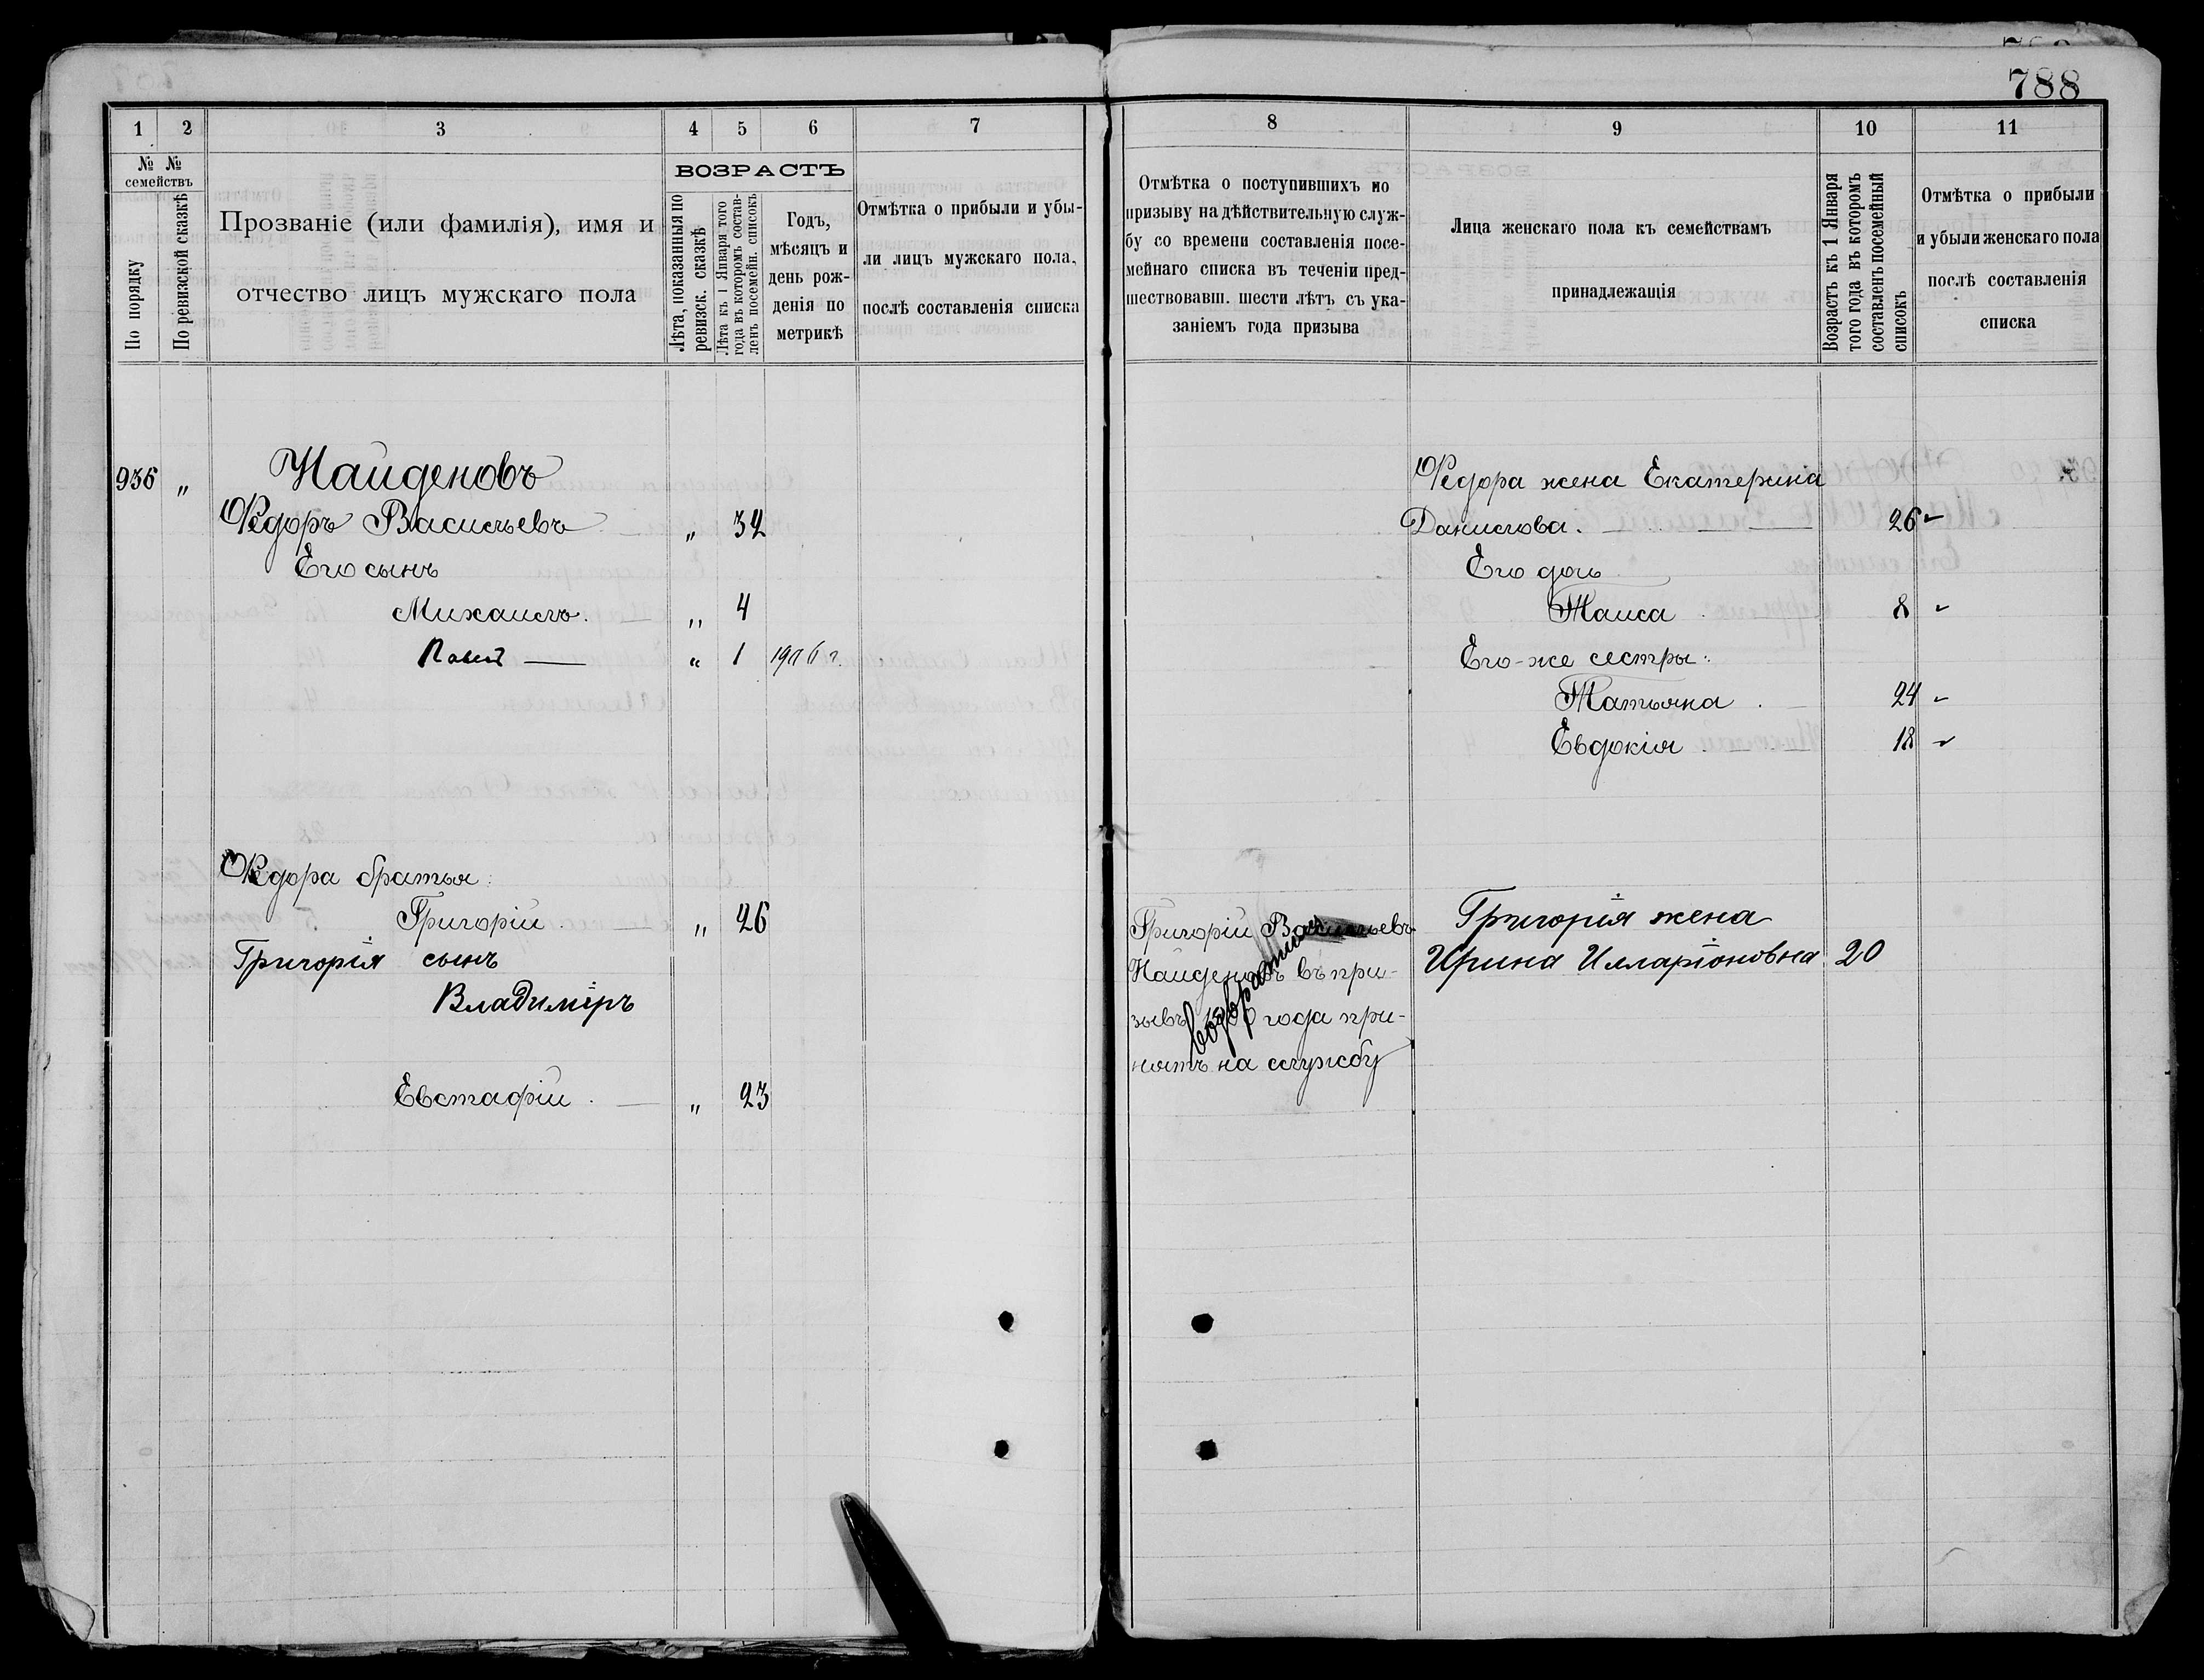 788
1 2 3 4 5 6 7
№ № семействъ
По порядку
По ревизской сказкѣ
Прозваніе (или фамилія), имя и
отчество лицъ мужскаго пола
ВОЗРАСТЪ
Лѣта, показанныя по
ревизск. сказкѣ
Лѣта къ 1 Января того
года въ которомъ состав-
ленъ посемейн. списокъ
Годъ,
мѣсяцъ и
день рож-
денія по
метрикѣ
Отмѣтка о прибыли и убы-
ли лицъ мужскаго пола,
послѣ составленія списка
936 " Найденовъ
Ѳедоръ Васильевъ " 32
Его сынъ
Михаилъ. " 4
Павел " 1 1906 г.
Ѳедора братья:
Григорій. " 26
Григорія сынъ
Владиміръ
Евстафій. " 23
8 9 10 11
Отмѣтка о поступившихъ по
призыву на дѣйствительную служ-
бу со времени составленія посе-
мейнаго списка въ теченіи пред-
шествовавш. шести лѣтъ съ ука-
заніемъ года призыва
Лица женскаго пола къ семействамъ
принадлежащія
Возрастъ къ 1 Января
того года въ которомъ
составленъ посемейный
списокъ
Отмѣтка о прибыли
и убыли женскаго пола
послѣ составленія
списка
Ѳедора жена Екатерина
Данилова. 26
Его дочь
Таиса 8
Его-же сестры:
Татьяна 24
Евдокія 18
Григорій Васильевъ
Найденовъ въ при-
зывъ года при-
нятъ на службу
Григорія жена
Ирина Илларіоновна 20